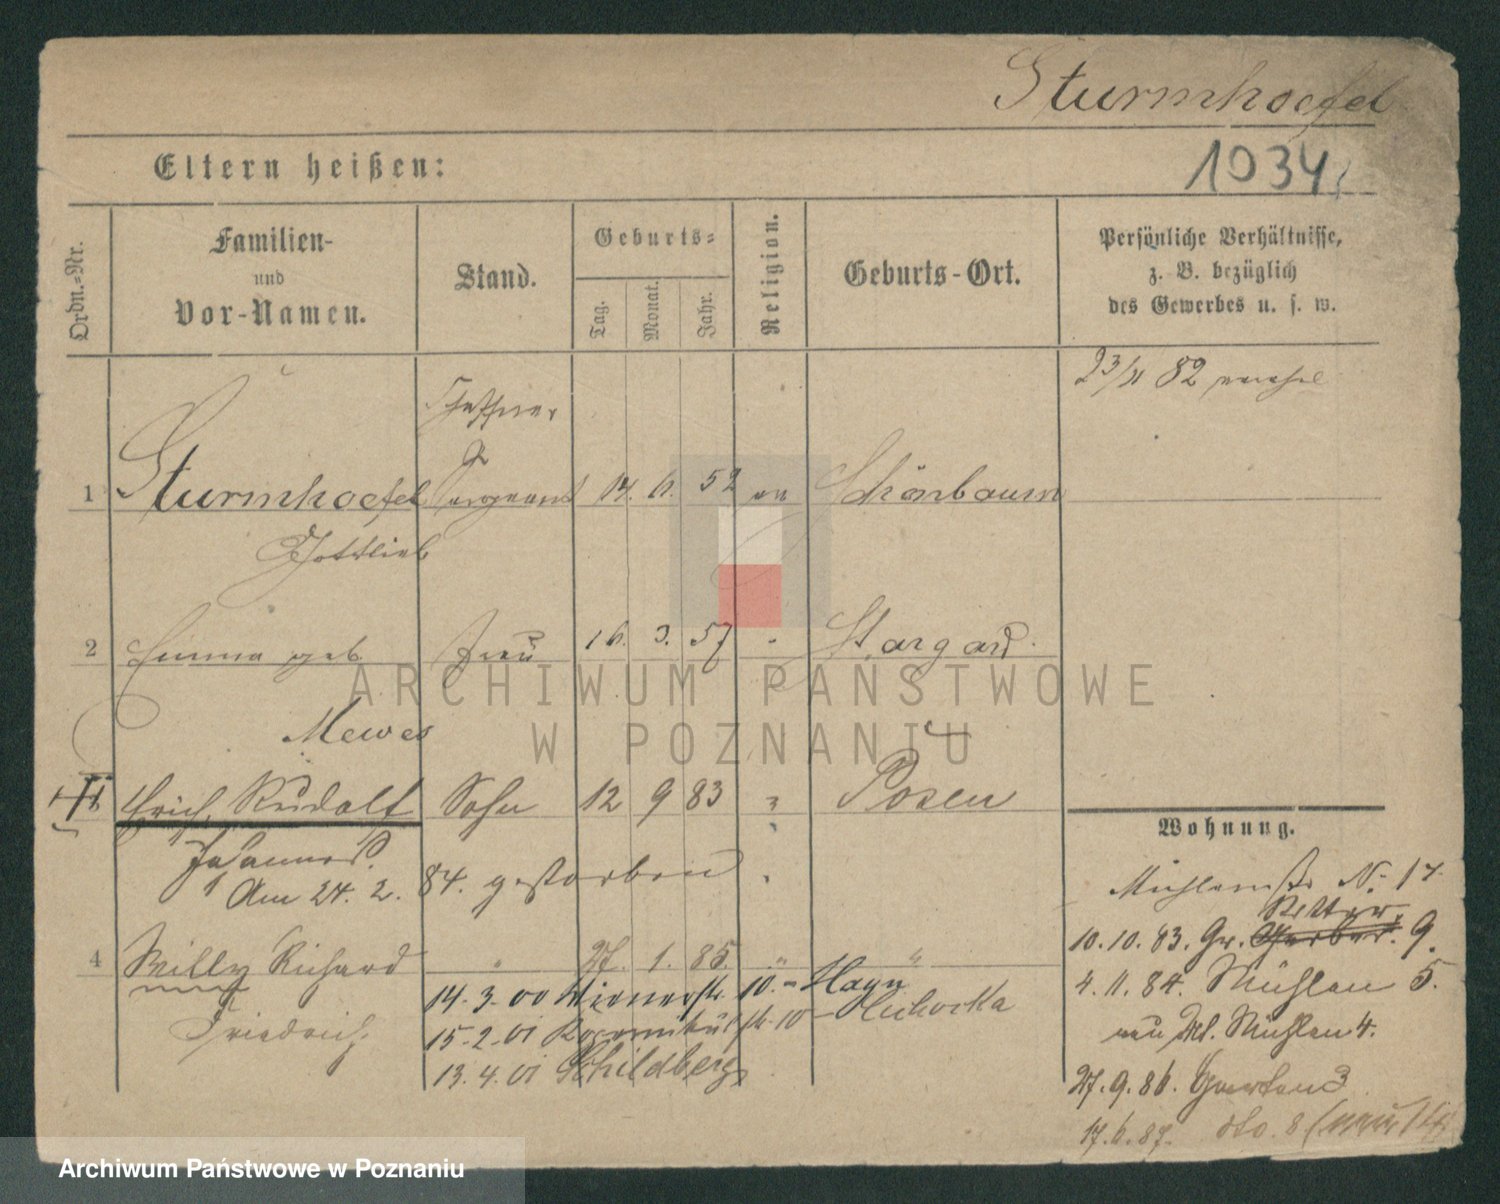 Sturmhoefel
Eltern heißen:
1034
Ordn.-Nr.
Familien-
und
Vor-Namen.
Stand.
Geburts-
Tag.
Monat.
Jahr.
Religion.
Geburts-Ort.
Persönliche Verhältnisse,
z. B. bezüglich
des Gewerbes u. s. w.
23/11 82
1 Sturmhoefel Sergeant 14. 11. 52 ev Schönbaum
Gottlieb
2 Emma geb Frau 16. 3. 57 " Stargard
Mewes
Erich, Rudolf Sohn 12 9 83 " Posen
Johannes
Am 24. 2. 84. gestorben
4 Willy Richard " 27. 1. 85. " "
Friedrich
14.3.00 Wienerstr 10. - Hayn
15.2.01 str. 10 - Cichocka
13.4.01 Schildberg
Wohnung.
Mühlenstr No 17
Ritter
10.10.83. Gr. Gerber. 9.
4.11.84. Mühlen 5.
neu Mühlen 4.
27.9.86. Garten 3
17.6.87. dto. 8 (neu 14)
ARCHIWUM PAŃSTWOWE
W POZNANIU
Archiwum Państwowe w Poznaniu